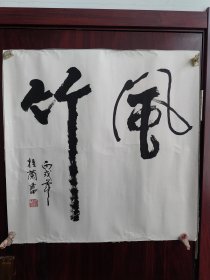 風竹
丙戌年
桂蘭書